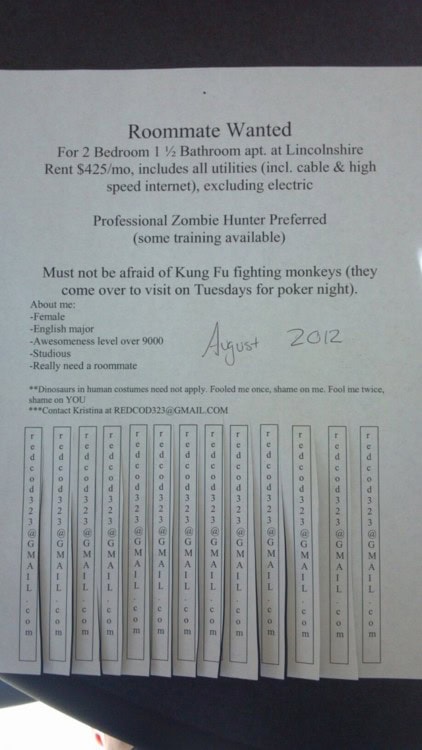 Roommate Wanted
For 2 Bedroom 1 ½ Bathroom apt. at Lincolnshire
Rent $425/mo, includes all utilities (incl. cable & high
speed internet), excluding electric
Professional Zombie Hunter Preferred
(some training available)
Must not be afraid of Kung Fu fighting monkeys (they
come over to visit on Tuesdays for poker night).
About me:
-Female
-English major
-Awesomeness level over 9000
-Studious
-Really need a roommate
August 2012
**Dinosaurs in human costumes need not apply. Fooled me once, shame on me. Fool me twice,
shame on YOU
***Contact Kristina at REDCOD323@GMAIL.COM
redcod323@GMAIL.com
redcod323@GMAIL.com
redcod323@GMAIL.com
redcod323@GMAIL.com
redcod323@GMAIL.com
redcod323@GMAIL.com
redcod323@GMAIL.com
redcod323@GMAIL.com
redcod323@GMAIL.com
redcod323@GMAIL.com
redcod323@GMAIL.com
redcod323@GMAIL.com
redcod323@GMAIL.com